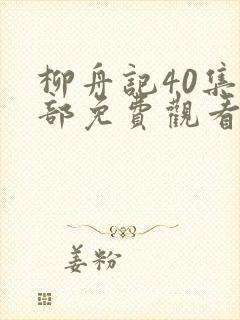 柳舟記40集
部免費觀看
姜粉